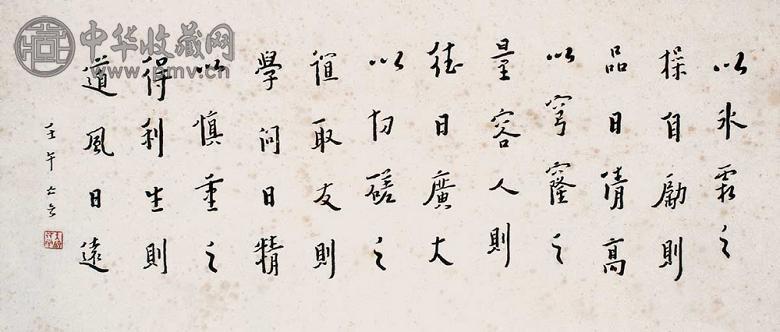 中华收藏网
以氷霜之
操自勵則
品日清高
以穹窿之
量容人則
德日廣大
以切磋之
誼取友則
學問日精
以慎重之
得利生則
道風日遠
壬午